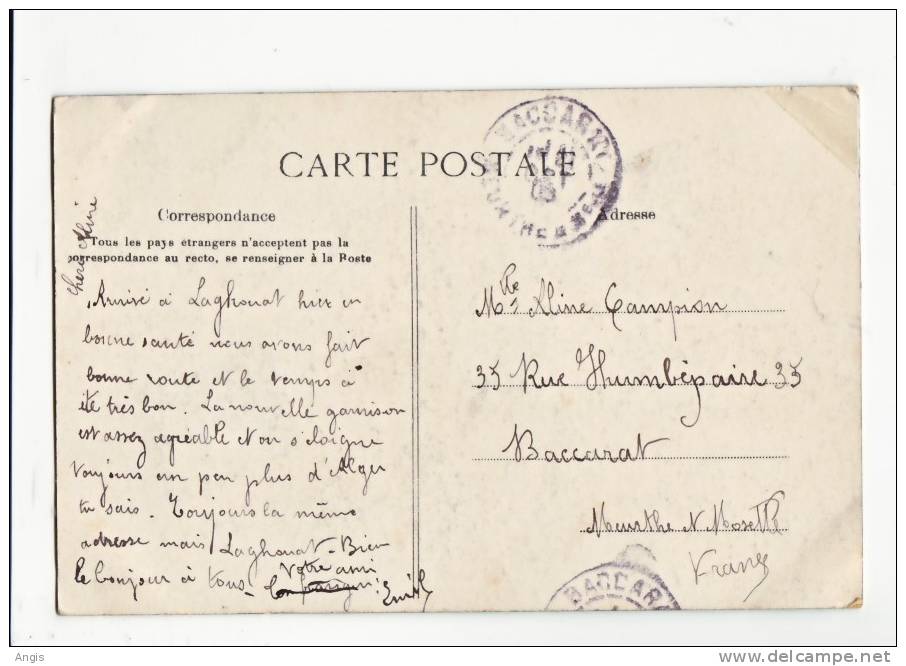 CARTE POSTALE
Correspondance
Tous les pays étrangers n'acceptent pas la
correspondance au recto, se renseigner à la Poste
Chère Aline
Arrivé à Laghouat hier en
bonne santé nous avons fait
bonne route et le temps à
été très bon. La nouvelle garnison
est assez agréable et on s'eloigne
toujours un peu plus d'Alger
tu sais. Toujours la même
adresse mais Laghouat - Bien
le bonjour à tous -
Votre ami
Emile
BACCARAT
MEURTHE
Adresse
Mlle Aline Campion
35 Rue Humbépaire 35
Baccarat
Meurthe et Moselle
France
BACCARA
Angis
www.delcampe.net